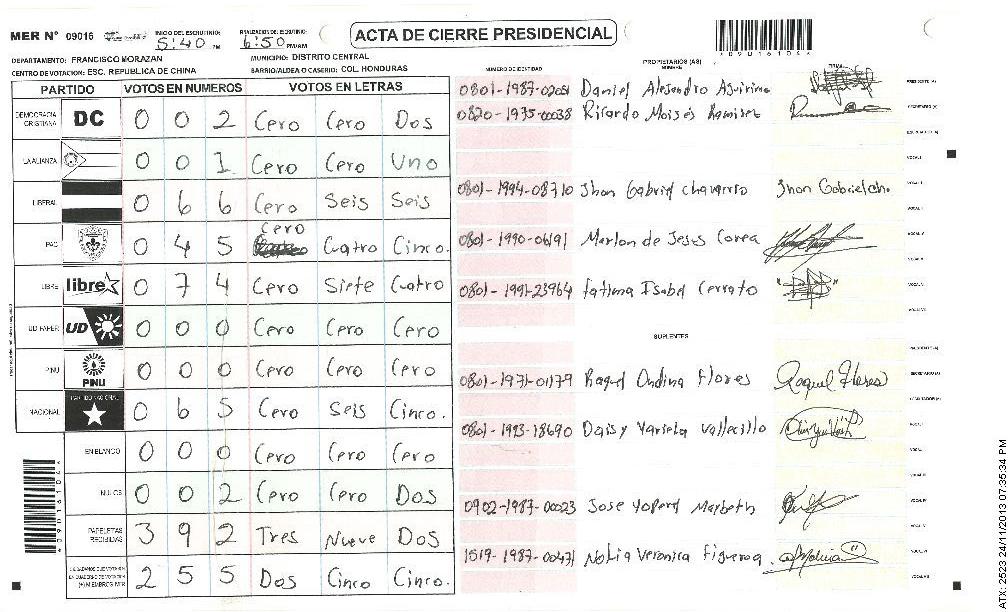 MER N° 09016 INICIO DEL ESCRUTINIO: 5:40 PM FINALIZACION DEL ESCRUTINIO: 6:50 PM/AM
ACTA DE CIERRE PRESIDENCIAL
*09016104*
DEPARTAMENTO: FRANCISCO MORAZAN MUNICIPIO: DISTRITO CENTRAL
CENTRO DE VOTACION: ESC. REPUBLICA DE CHINA BARRIO/ALDEA O CASERIO: COL. HONDURAS
PARTIDO VOTOS EN NUMEROS VOTOS EN LETRAS
DEMOCRACIA CRISTIANA DC 0 0 2 Cero Cero Dos
LA ALIANZA 0 0 1 Cero Cero Uno
LIBERAL 0 6 6 Cero Seis Seis
PAC 0 4 5 Cero Cuatro Cinco.
LIBRE libre 0 7 4 Cero Siete Cuatro
UD FAPER UD 0 0 0 Cero Cero Cero
PINU PINU 0 0 0 Cero Cero Cero
NACIONAL PARTIDO NACIONAL 0 6 5 Cero Seis Cinco.
EN BLANCO 0 0 0 Cero Cero Cero
NULOS 0 0 2 Cero Cero Dos
PAPELETAS RECIBIDAS 3 9 2 Tres Nueve Dos
2 5 5 Dos Cinco Cinco.
PROPIETARIOS (AS)
NUMERO DE IDENTIDAD NOMBRE FIRMA
Daniel Alejandro
0820-1975-00038 Ricardo Moisés Ramirez
0801-1994-08710 Jhon Gabriel Chavarria Jhon Gabriel
0801-1990-06191 Marlon de Jesus Corea
0801-1991-23964 Fatima Isabel Cerrato
SUPLENTES
0801-1971-01179 Raquel Ondina Flores Raquel Flores
0801-1993-18690 Daisy Vallecillo
0902-1987-00023 Jose
1519-1987-00471 Veronica Figueroa
*09016104*
ATX: 2523 24/11/2013 07:35:34 PM